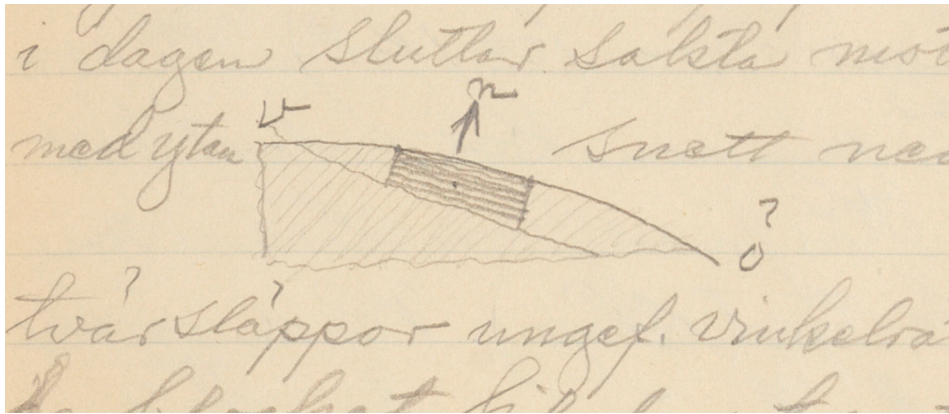 i dagen sluttar sakta mot
v n
med ytan snett ned
? o
tvärsläppor ungef. vinkelrä